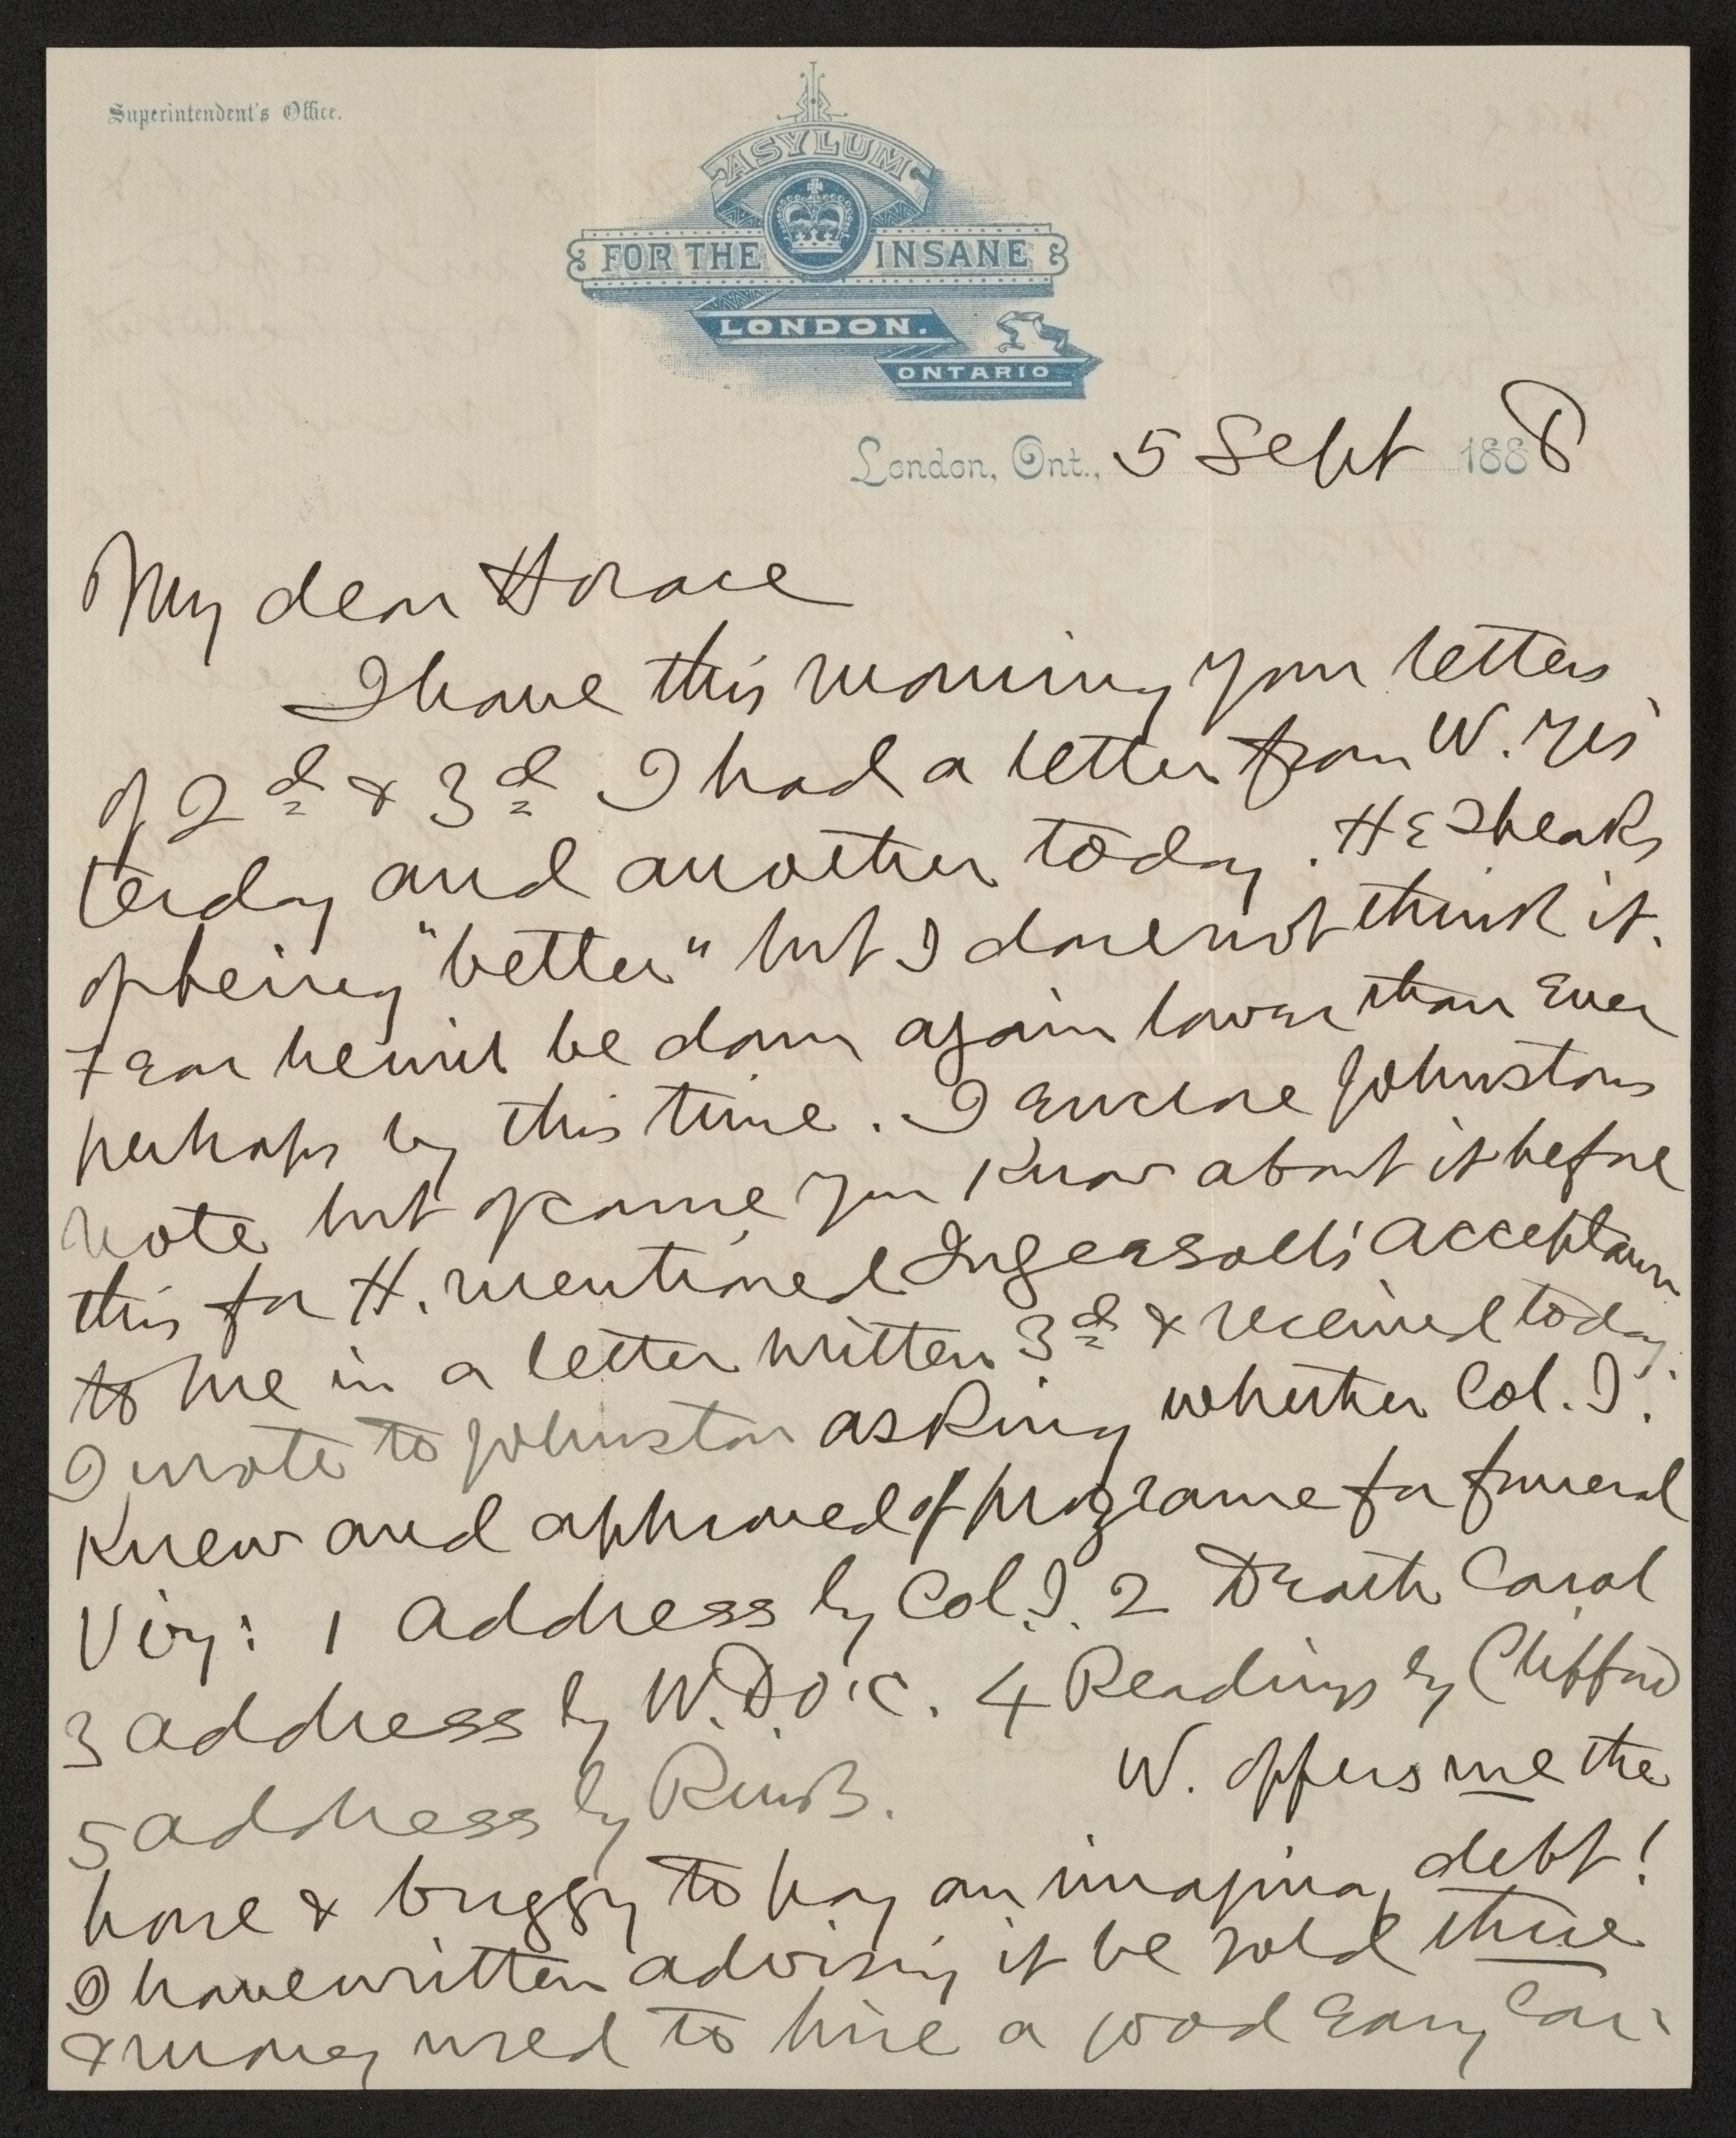 Superintendent's Office.
ASYLUM
FOR THE INSANE
LONDON.
ONTARIO
London, Ont., 5 Sept 1888
My dear Horace
I have this morning your letters
of 2d & 3d I had a letter from W. yes-
terday and another today. He speaks
of being "better" but I do not think it.
Fear he will be down again lower than ever
perhaps by this time. I enclose Johnstons
note but of course you know about it before
this for H. mentioned Ingersoll's acceptance
to me in a letter written 3d & received today.
I wrote to Johnston asking whether Col. I.
knew and approved of programe for funeral
Viz: 1 address by Col. I. 2 Death Carol
3 address by W.D.O'C. 4 Readings by Clifford
5 address by RMB. W. offers me the
horse & buggy to pay an imagina debt!
I have written advising it be sold there
& money used to hire a good easy car-